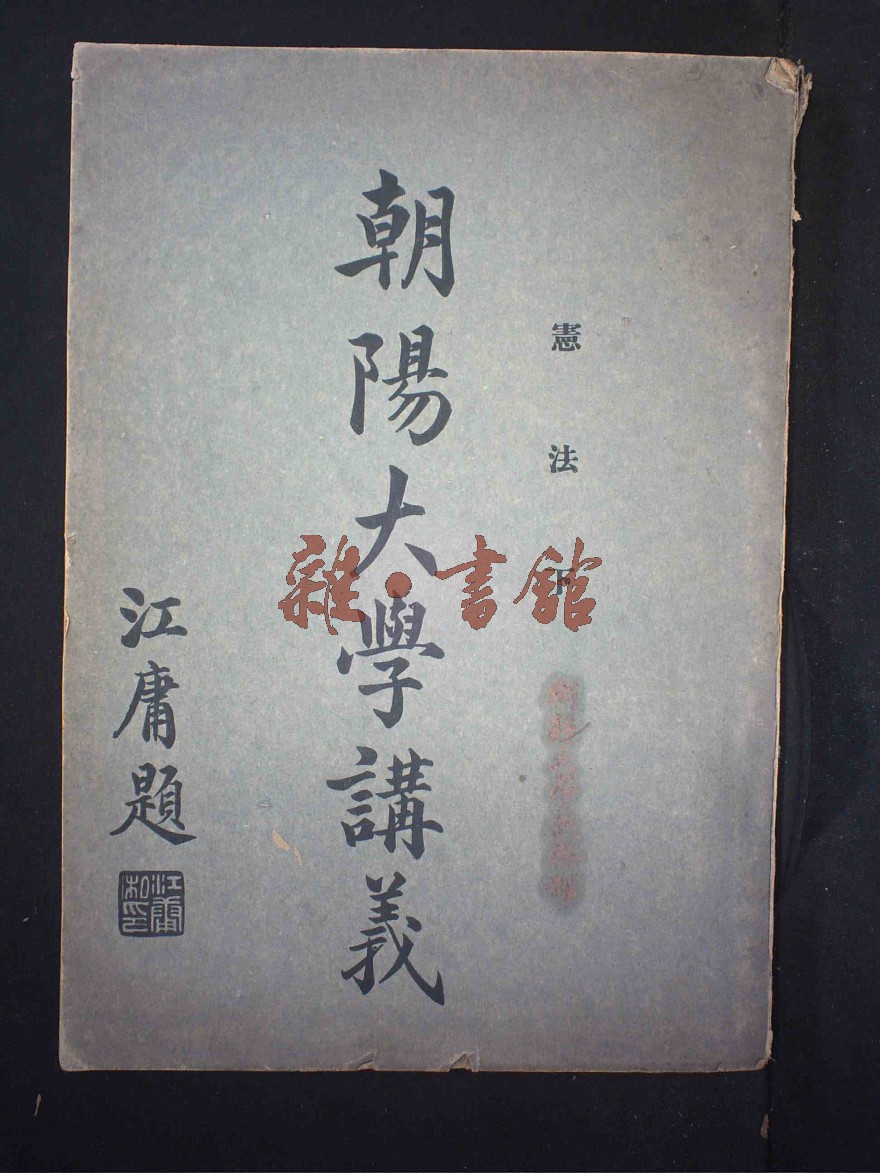 憲法 下
朝陽大學講義
江庸題
江庸私印
雜·書館